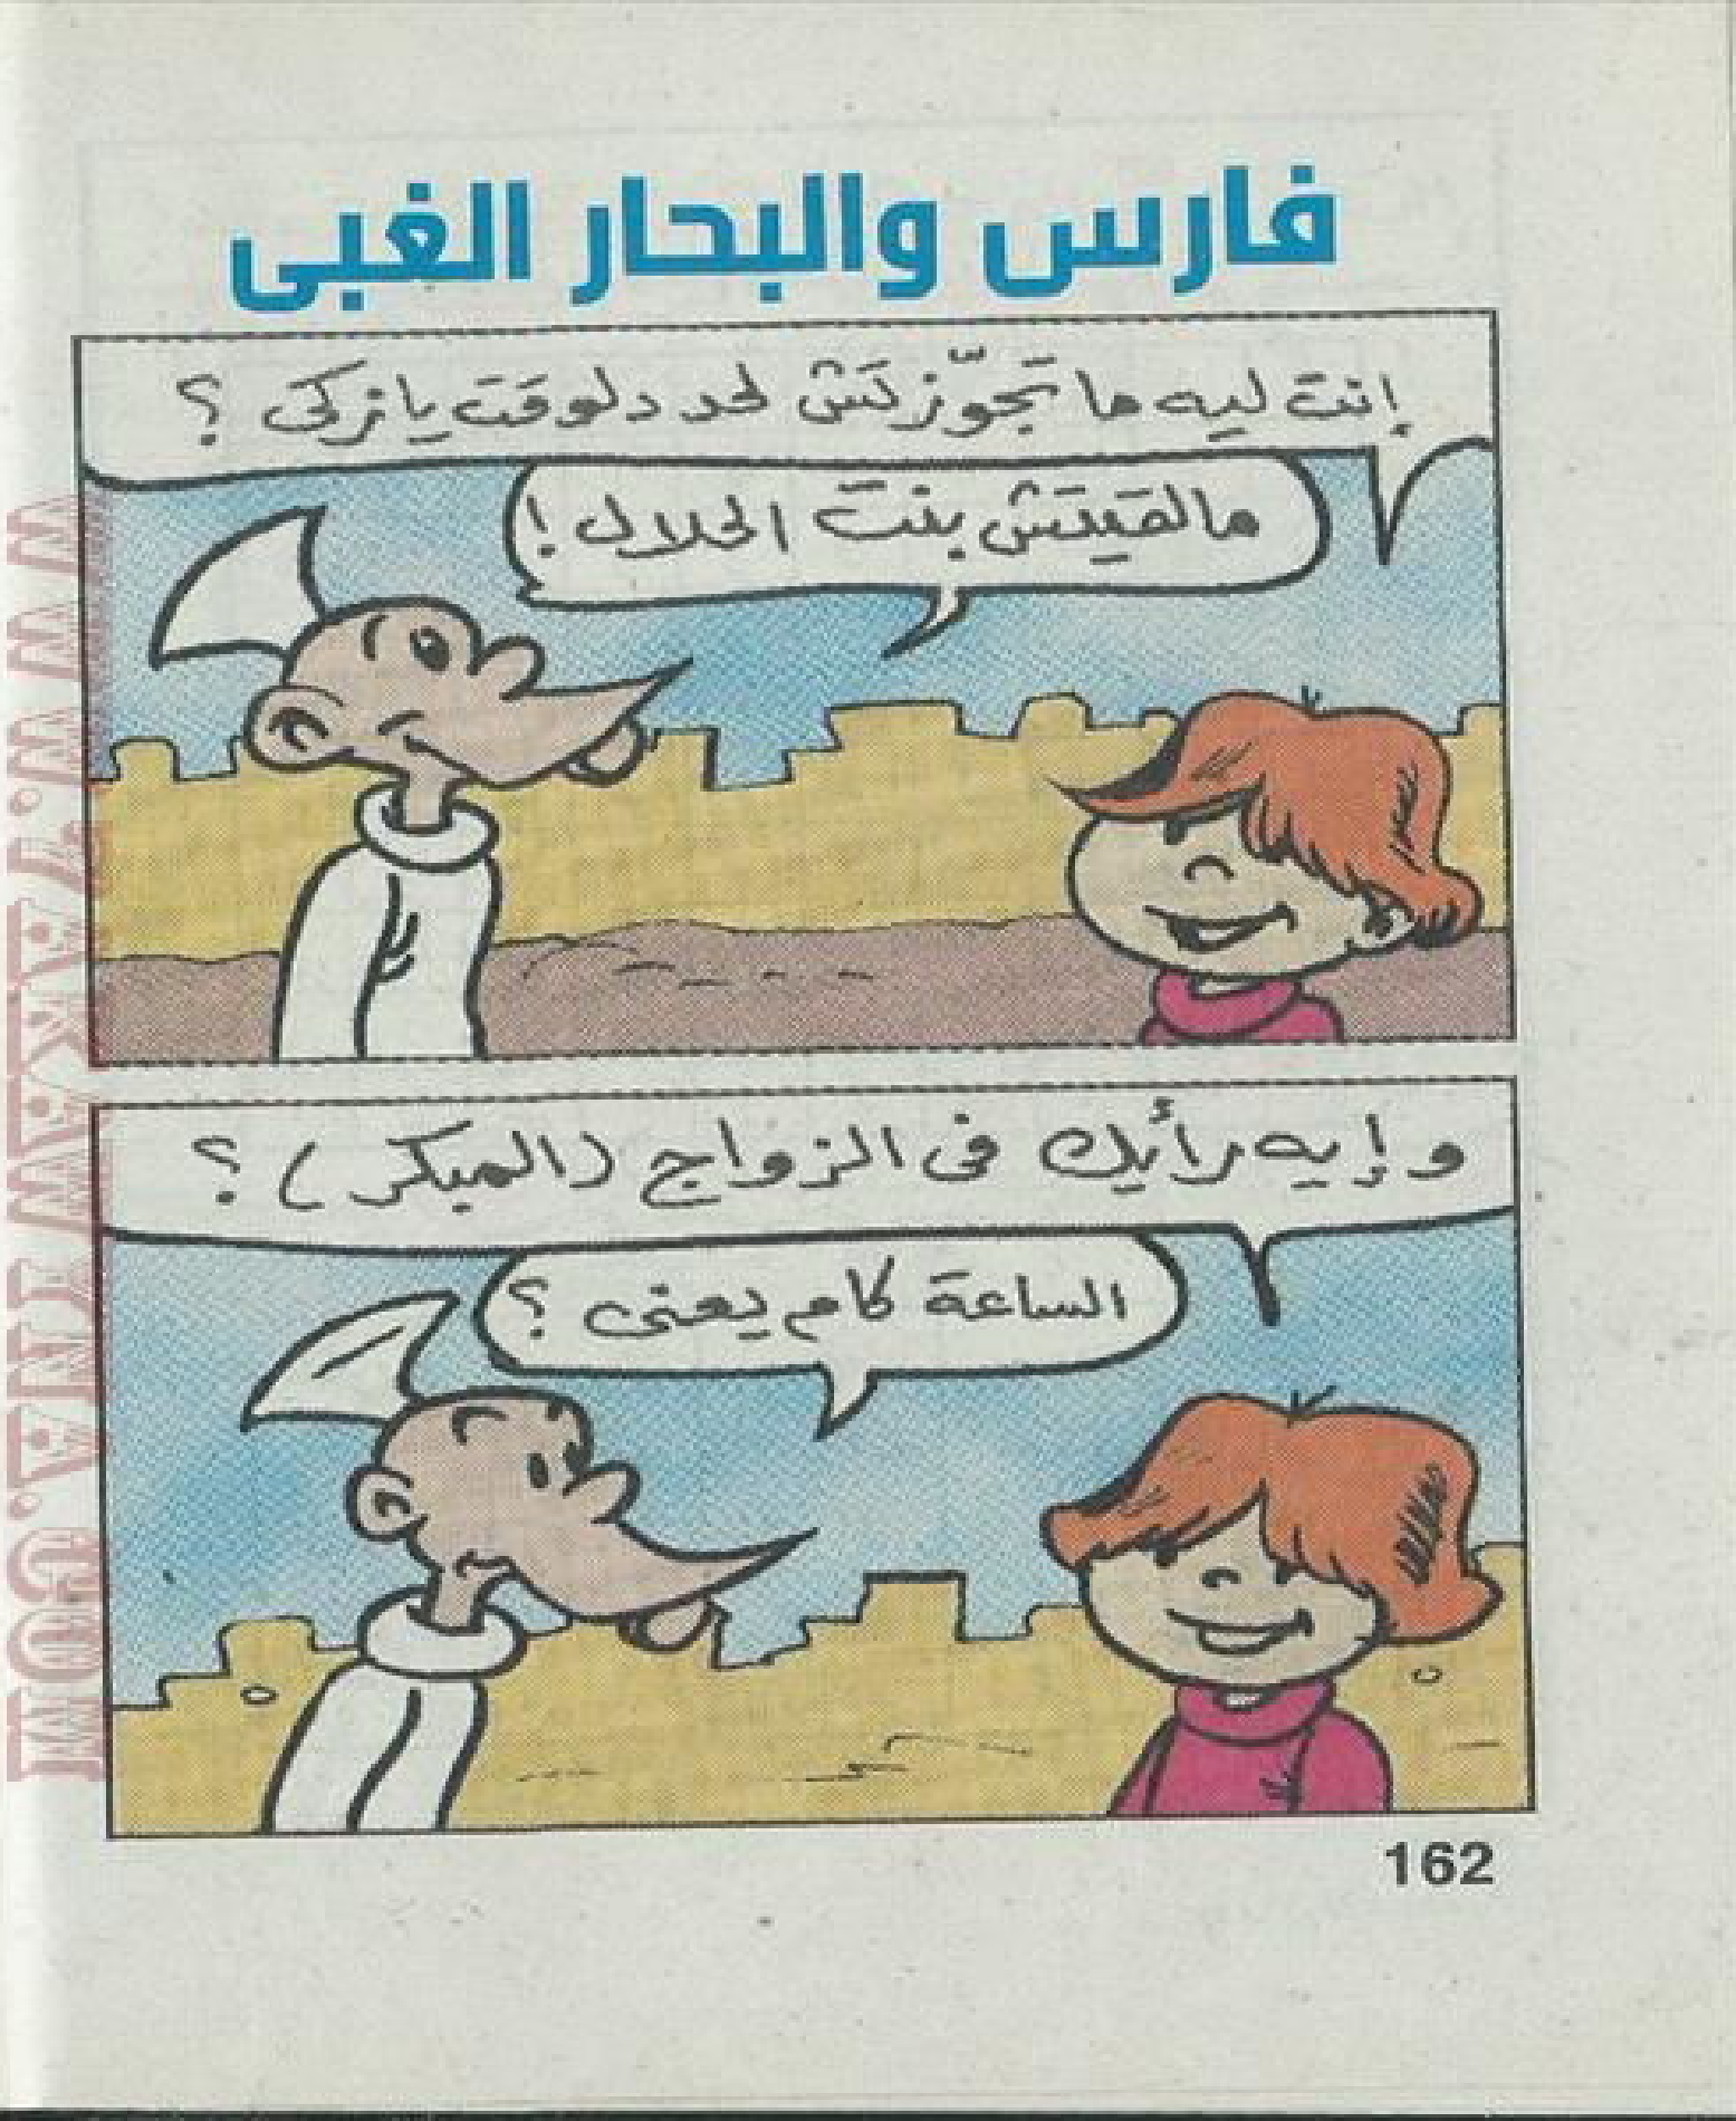 فارس والبحار الغبى
إنت ليه ما تجوّزتش لحد دلوقت يا زكى ؟
مالقيتش بنت الحلال !
و إيه رأيك فى الزواج (المبكر) ؟
الساعة كام يعنى ؟
162